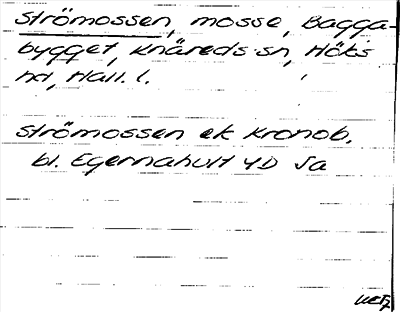 Strömossen, mosse, Bagga-
bygget, Knäreds sn, Höks
hd, Hall. l.
Strömossen ek Kronob.
bl. Egernahult 4D Sa